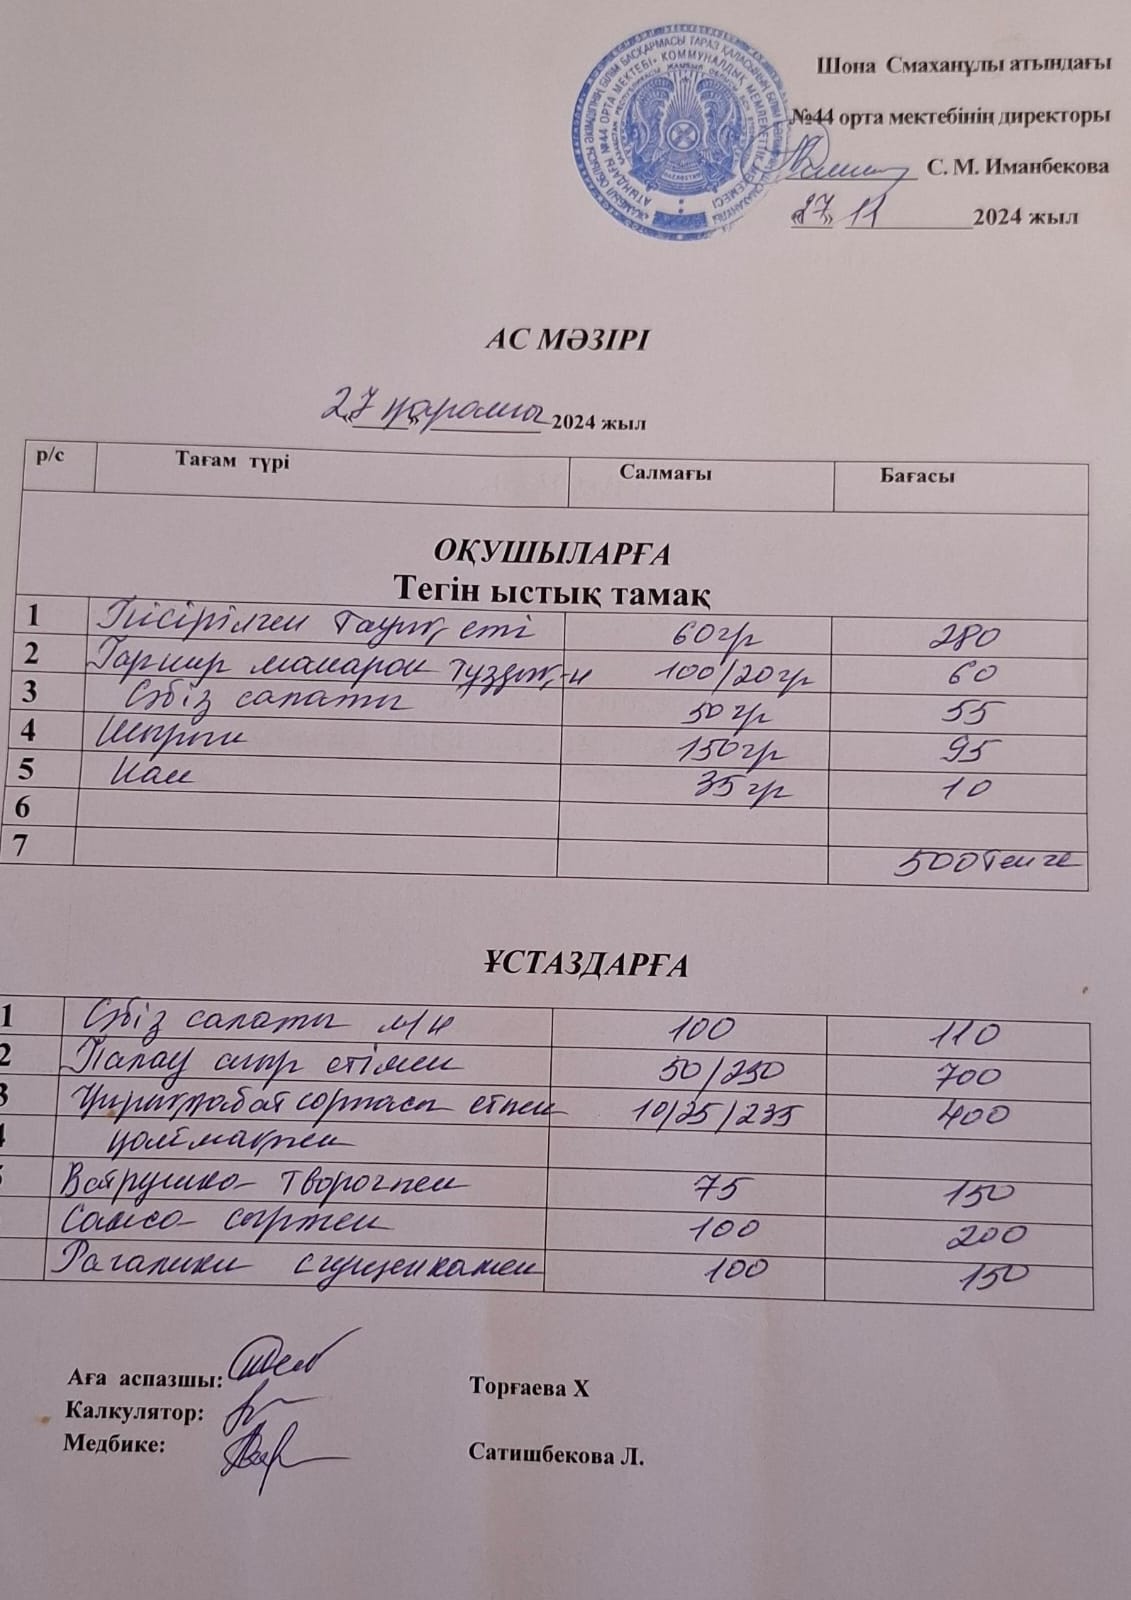 Шона Смаханұлы атындағы
№44 орта мектебінің директоры
С. М. Иманбекова
«27» 11 2024 жыл
АС МӘЗІРІ
«27» қараша 2024 жыл
р/с Тағам түрі Салмағы Бағасы
ОҚУШЫЛАРҒА
Тегін ыстық тамақ
1 Пісірілген тауық еті 60гр 280
2 Гарнир макарон тұздық-н 100/20гр 60
3 Сәбіз салаты 50гр 55
4 150гр 95
5 Нан 35гр 10
6
7 500 тенге
ҰСТАЗДАРҒА
1 Сәбіз салаты м/н 100 110
2 Палау сиыр етімен 50/250 700
3 сорпасы етпен 10/25/235 400
қаймақпен
Ватрушка творогпен 75 150
Самса 100 200
Рагалики сгущенкамен 100 150
Аға аспазшы: Торғаева Х
Калкулятор:
Медбике: Сатишбекова Л.